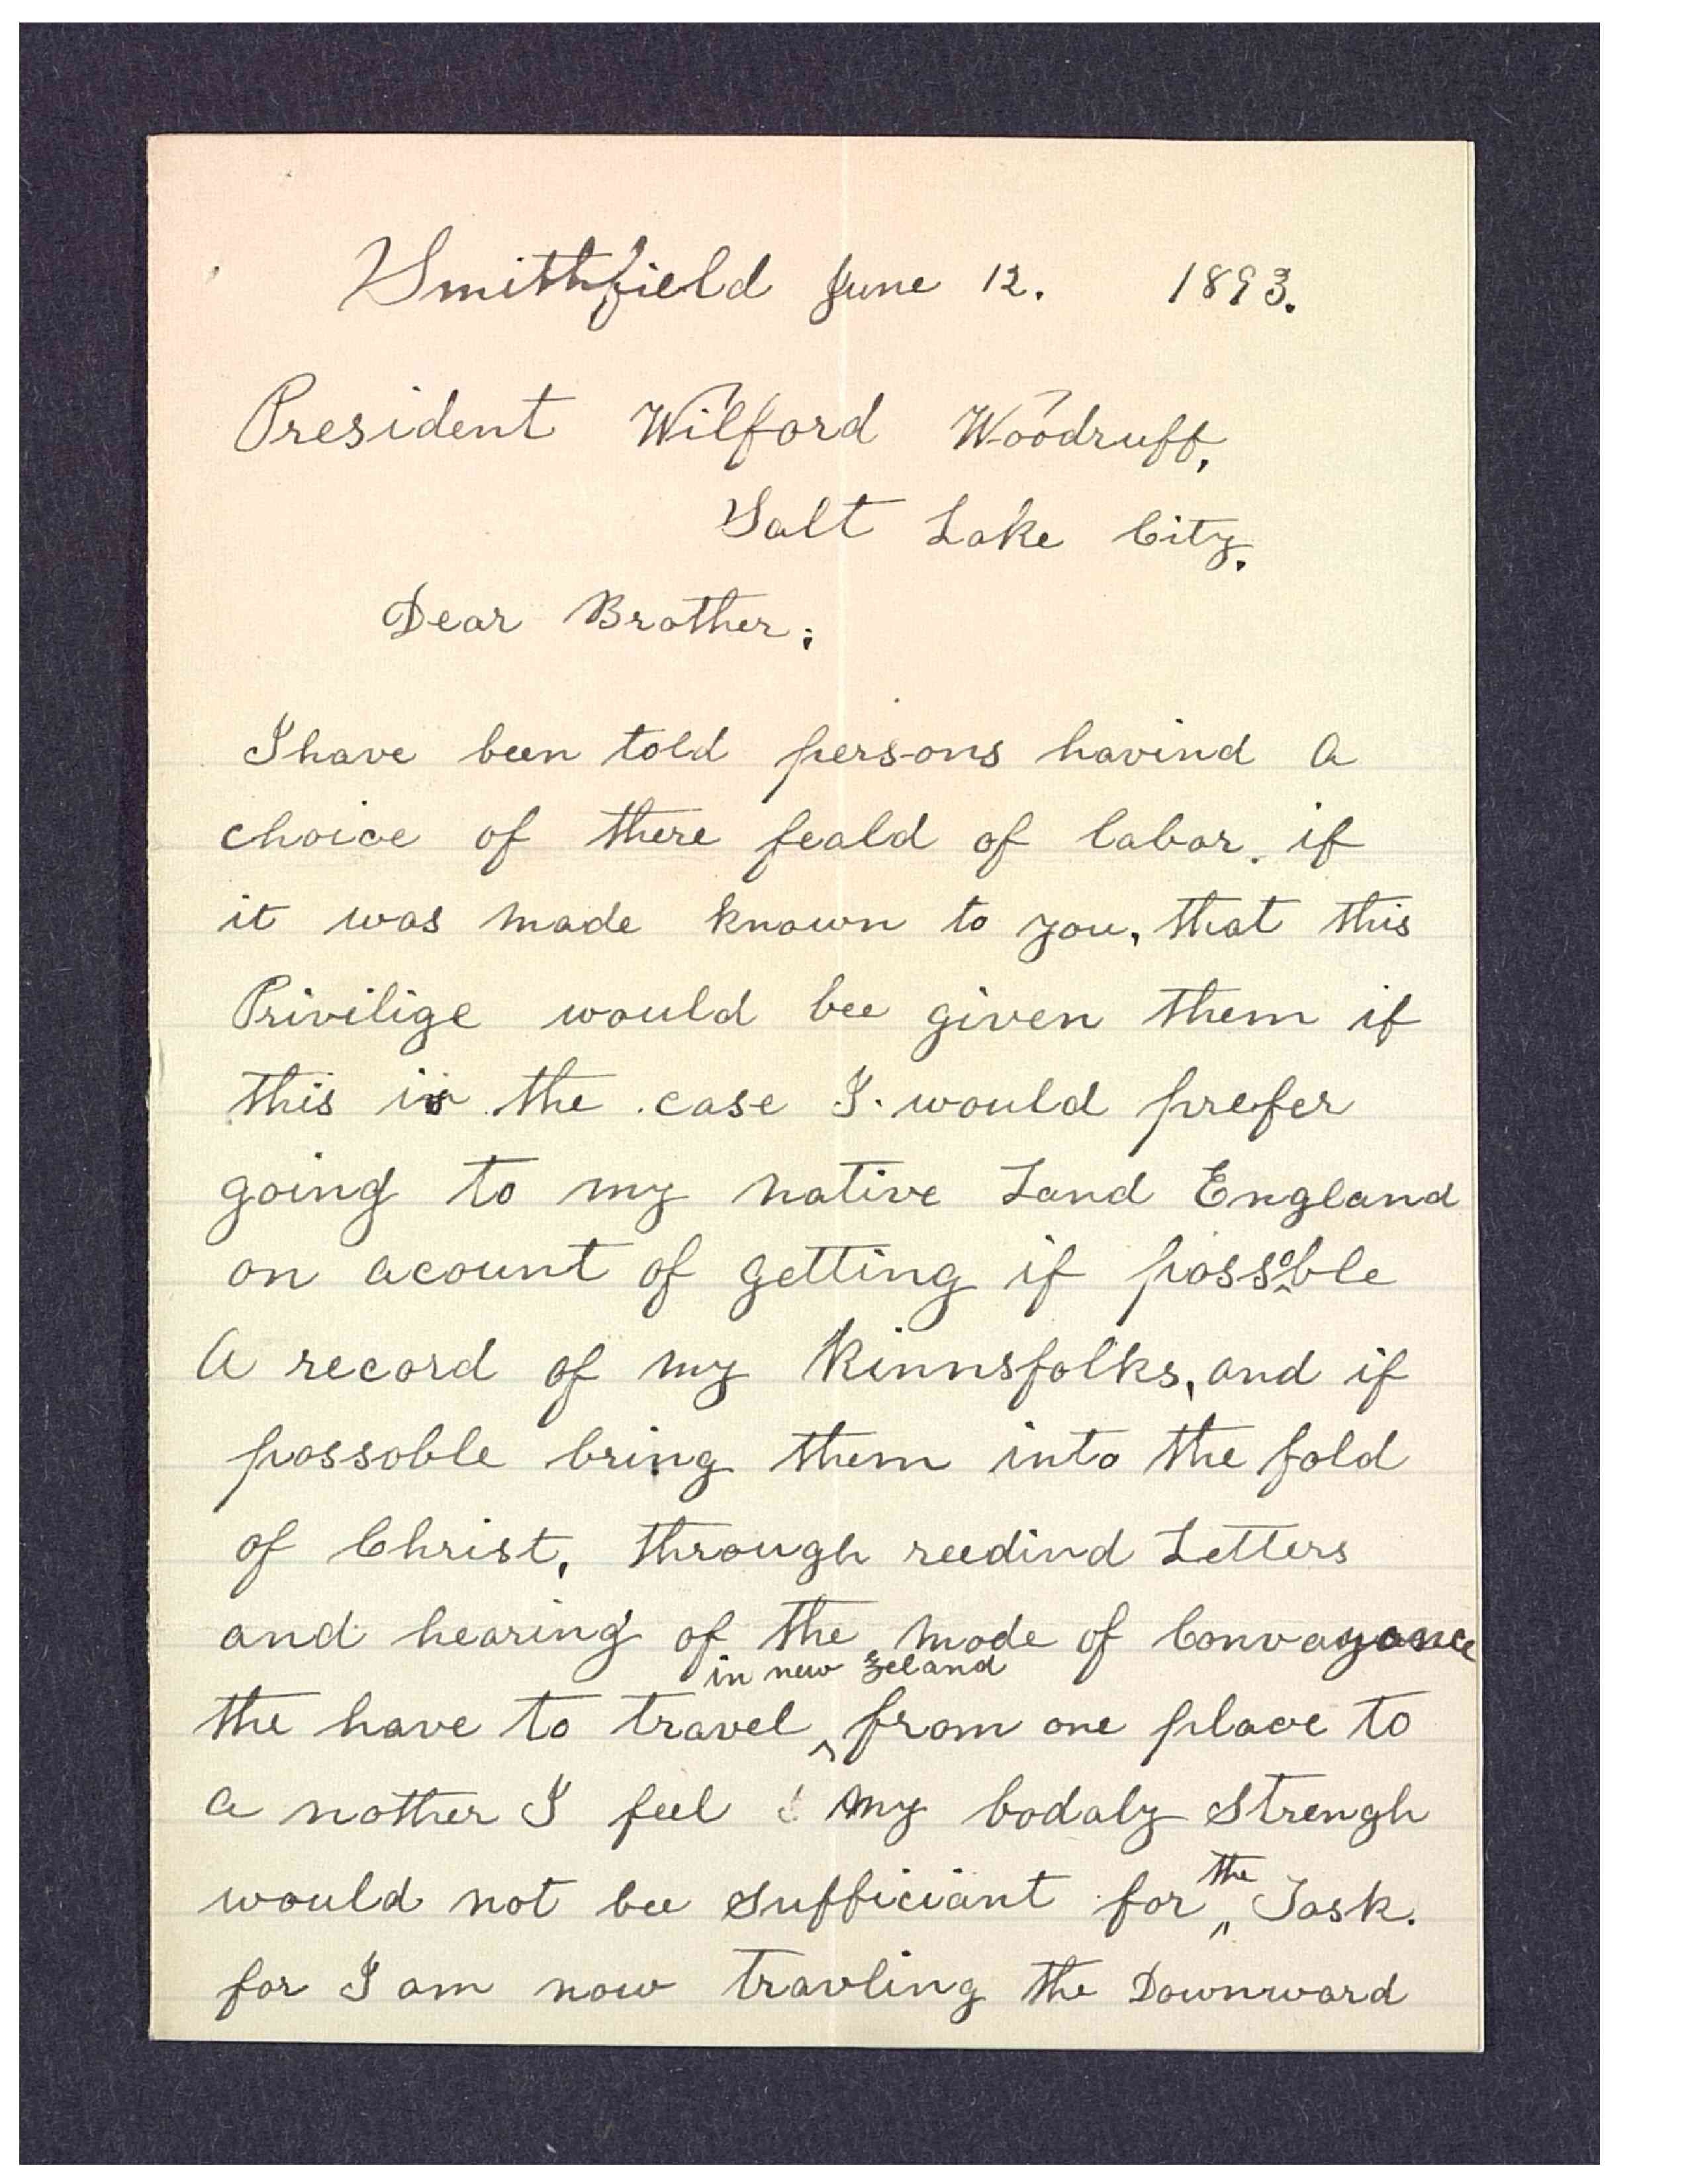 Smithfield June 12. 1893.
President Wilford Woodruff,
Salt Lake City.
Dear Brother;
I have been told persons havind A
choice of there feald of labor. if
it was made known to you, that this
Privilige would bee given them if
this is the case I would prefer
going to my native Land England
on acount of getting if possoble
A record of my Kinnsfolks, and if
possoble bring them into the fold
of Christ, through reedind Letters
and hearing of the mode of Convayance
in new Zeland
the have to travel ^ from one place to
a nother I feel my bodaly Strengh
the
would not bee Sufficiant for " Task.
for I am now travling the Downward